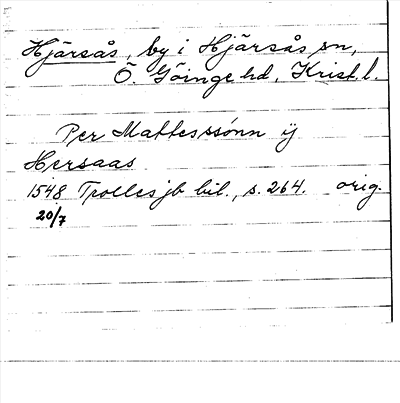 Hjärsås, by i Hjärsås sn,
Ö. Göinge hd, Krist. l.
Per Mattesssónn ÿ
Hersaas
1548 Trolles jb bil., s. 264. orig.
20/7